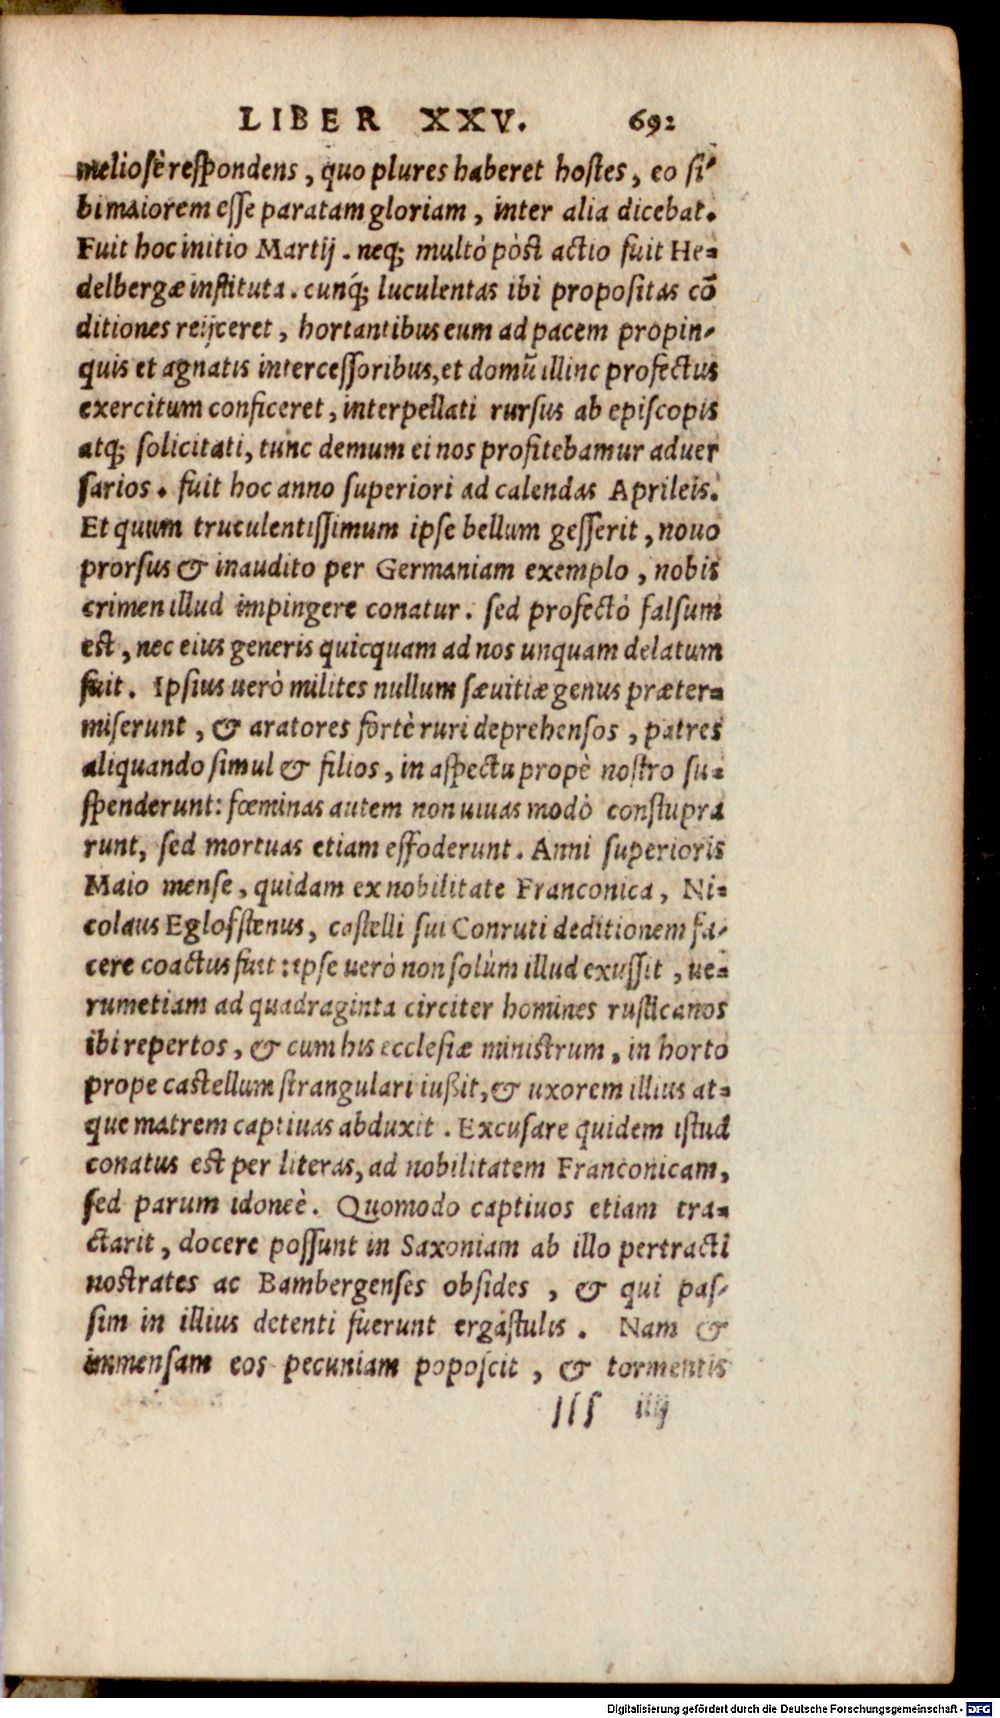 LIBER XXV. 692
meliosè respondens, quo plures haberet hostes, eo si-
bi maiorem esse paratam gloriam, inter alia dicebat.
Fuit hoc initio Martij. neq; multò pòst actio fuit He-
delbergæ instituta. cunq́; luculentas ibi propositas cō
ditiones reijceret, hortantibus eum ad pacem propin-
quis et agnatis intercessoribus, et domū illinc profectus
exercitum conficeret, interpellati rursus ab episcopis
atq; solicitati, tunc demum ei nos profitebamur aduer
sarios. fuit hoc anno superiori ad calendas Aprileis.
Et quum truculentissimum ipse bellum gesserit, nouo
prorsus & inaudito per Germaniam exemplo, nobis
crimen illud impingere conatur. sed profectò falsum
est, nec eius generis quicquam ad nos unquam delatum
fuit. Ipsius uerò milites nullum sæuitiæ genus præter-
miserunt, & aratores fortè ruri deprehensos, patres
aliquando simul & filios, in aspectu propè nostro su-
spenderunt: fœminas autem non uiuas modò constupra
runt, sed mortuas etiam effoderunt. Anni superioris
Maio mense, quidam ex nobilitate Franconica, Ni-
colaus Eglofstenus, castelli sui Conruti deditionem fa-
cere coactus fuit: ipse uerò non solùm illud exussit, ue-
rumetiam ad quadraginta circiter homines rusticanos
ibi repertos, & cum his ecclesiæ ministrum, in horto
prope castellum strangulari iußit, & uxorem illius at-
que matrem captiuas abduxit. Excusare quidem istud
conatus est per literas, ad nobilitatem Franconicam,
sed parum idoneè. Quomodo captiuos etiam tra-
ctarit, docere possunt in Saxoniam ab illo pertracti
nostrates ac Bambergenses obsides, & qui pas-
sim in illius detenti fuerunt ergástulis. Nam &
immensam eos pecuniam poposcit, & tormentis
SSS iiij
Digitalisierung gefördert durch die Deutsche Forschungsgemeinschaft - DFG